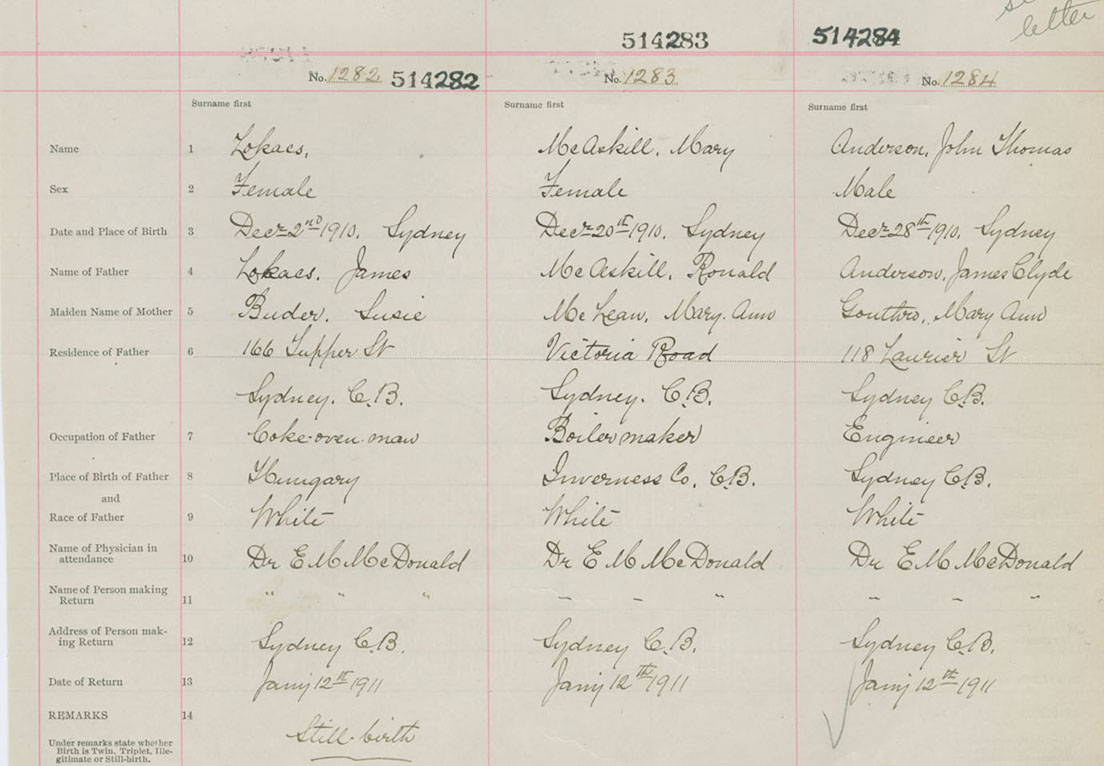 letter
514283 514284
No. 1282 514282 No. 1283 No. 1284
Surname first Surname first Surname first
Name 1 Lokacs, McAskill, Mary Anderson, John Thomas
Sex 2 Female Female Male
Date and Place of Birth 3 Decr 2nd 1910, Sydney Decr 20th 1910, Sydney Decr 28th 1910, Sydney
Name of Father 4 Lokacs, James McAskill, Ronald Anderson, James Clyde
Maiden Name of Mother 5 Buder, Susie McLean, Mary Ann Gouthro, Mary Ann
Residence of Father 6 166 Tupper St Victoria Road 118 Laurier St
Sydney. C.B. Sydney. C.B. Sydney C.B.
Occupation of Father 7 Coke-oven-man Boilermaker Engineer
Place of Birth of Father 8 Hungary Inverness Co, C.B. Sydney C.B.
and
Race of Father 9 White White White
Name of Physician in
attendance 10 Dr E M McDonald Dr E M McDonald Dr E M McDonald
Name of Person making
Return 11 " " " – – " – – "
Address of Person mak-
ing Return 12 Sydney C.B. Sydney C.B. Sydney C.B.
Date of Return 13 Jany 12th 1911 Jany 12th 1911 Jany 12th 1911
REMARKS 14 Still-birth
Under remarks state whether
Birth is Twin, Triplet, Ille-
gitimate or Still-birth.